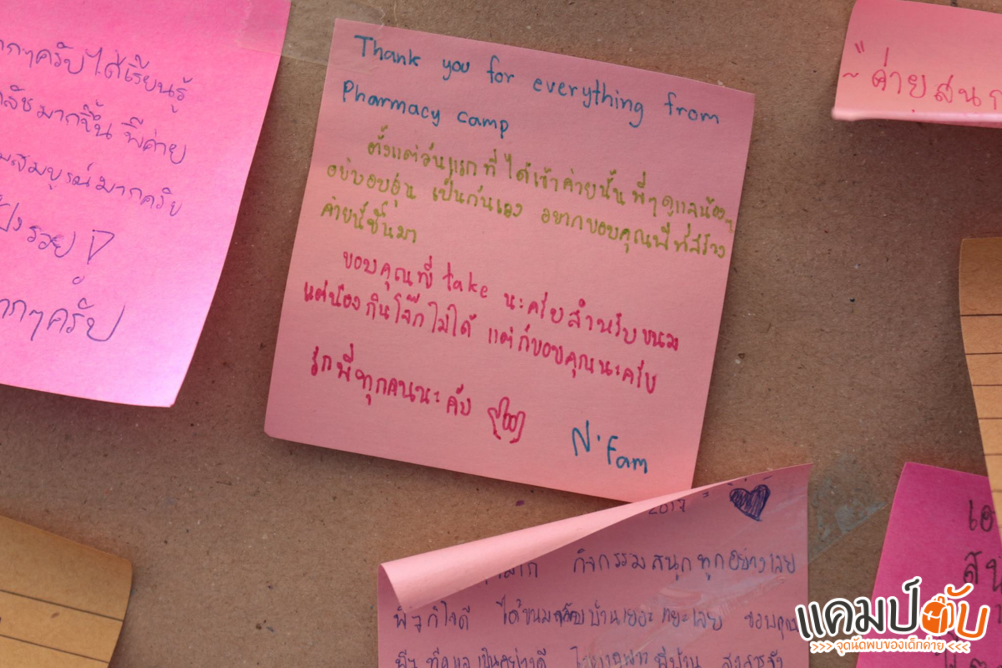 กๆครับได้เรียนรู้
มากขึ้น พี่ค่าย
สมบูรณ์มากครับ
กๆครับ
Thank you for everything from
Pharmacy camp
ตั้งแต่วันแรกที่ได้เข้าค่ายนั้น พี่ๆดูแลน้องๆ
อย่างอบอุ่น เป็นกันเอง อยากขอบคุณพี่ที่สร้าง
ค่ายนี้ขึ้นมา
ขอบคุณพี่ take นะครับสำหรับขนม
แต่น้องกินโจ๊กไม่ได้ แต่ก็ขอบคุณนะครับ
รักพี่ทุกคนนะคับ
N'Fam
"ค่ายสนุก
2017
กิจกรรมสนุกทุกอย่างเลย
พี่ๆก็ใจดี ได้ขนมกลับบ้านเยอะแยะเลย ขอบคุณ
เอ
สน
แคมป์ฮับ
>>> จุดนัดพบของเด็กค่าย <<<